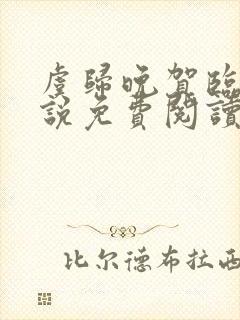 虞歸晚賀臨
說免費閱讀
比尔德布拉西